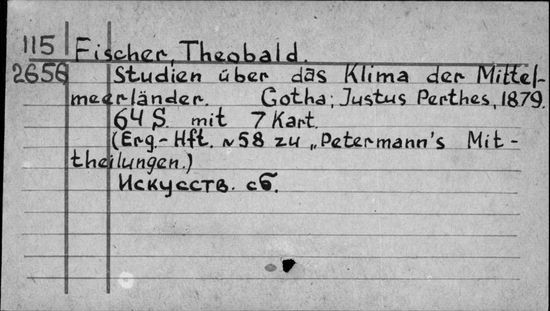 115 Fischer, Theobald.
2656 Studien über das Klima der Mittel-
meerländer. Gotha; Justus Perthes, 1879.
64 S. mit 7 Kart.
(Erg.-Hft. № 58 zu „Petermann's Mit-
theilungen.)
Искусств. сб.